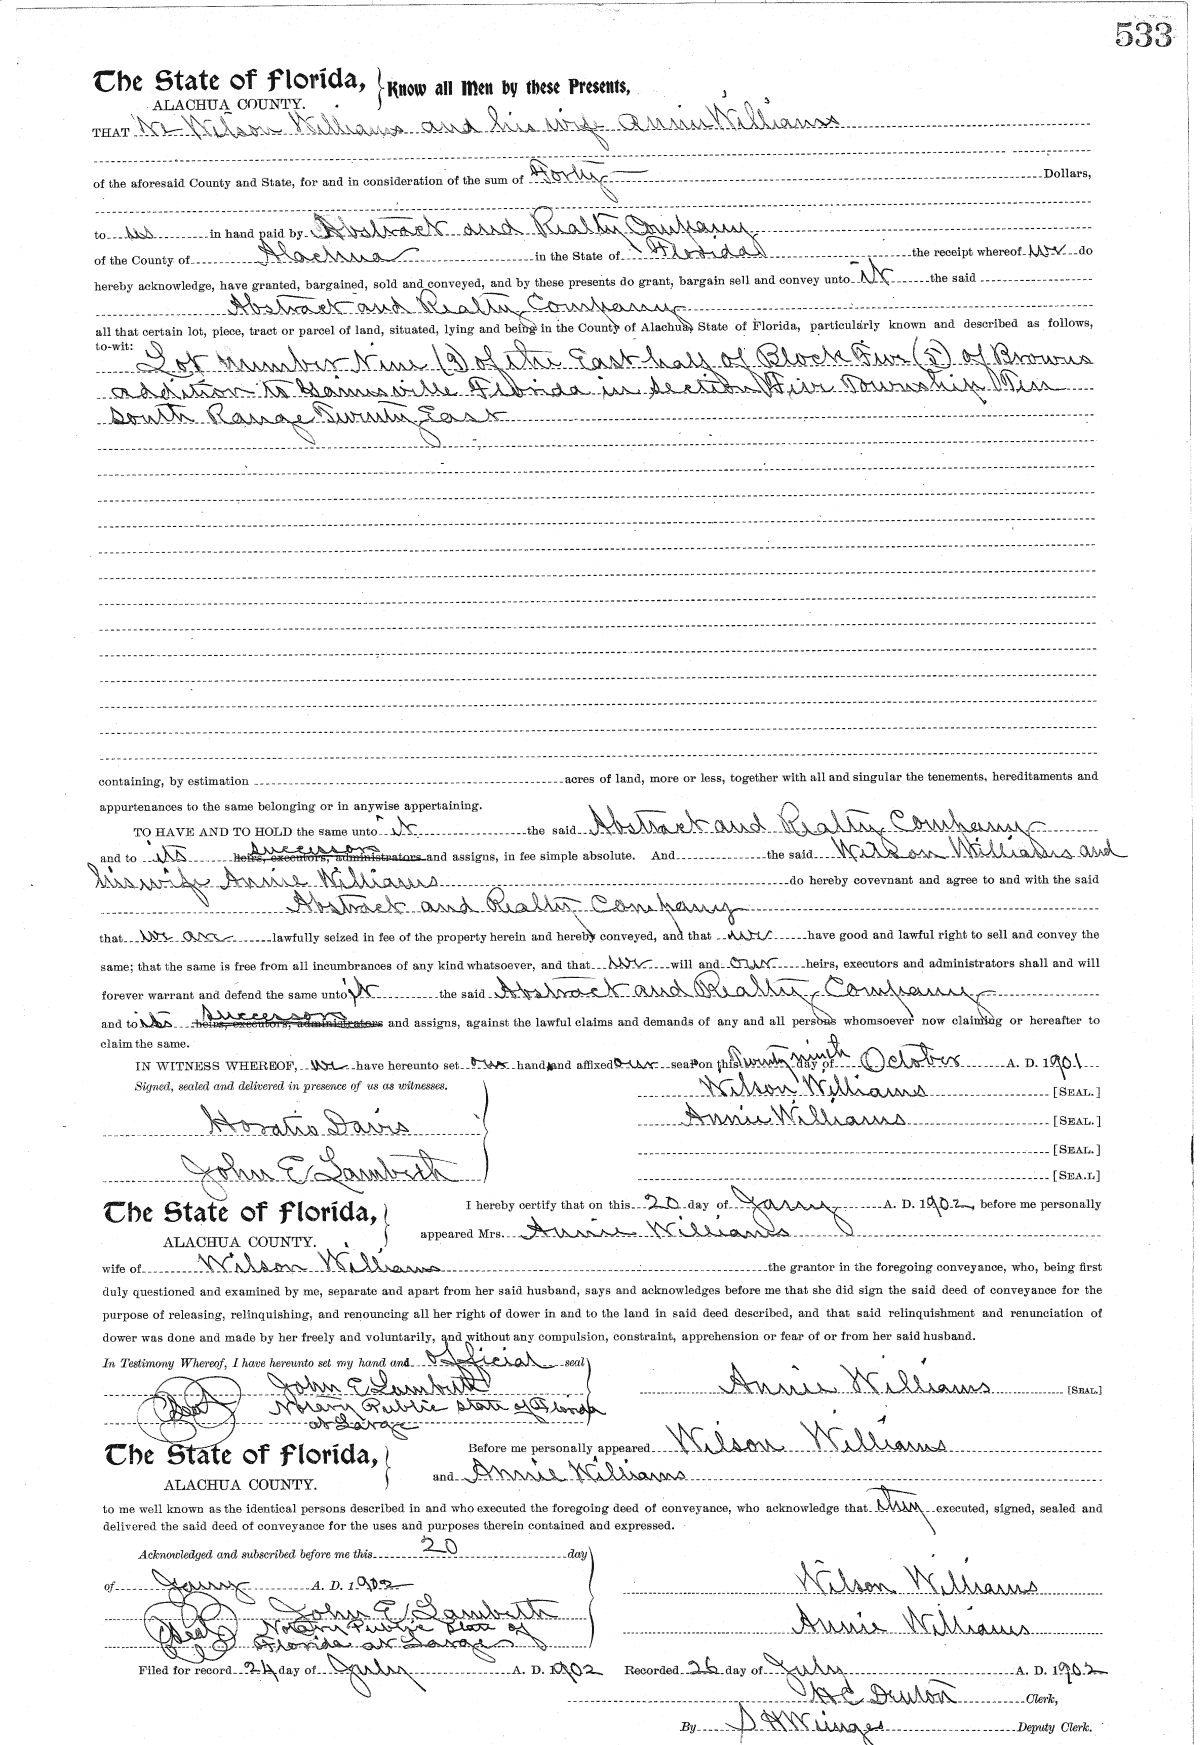 533
The State of Florida, Know all Men by these Presents,
ALACHUA COUNTY.
THAT We Wilson Williams and his wife Annie Williams
of the aforesaid County and State, for and in consideration of the sum of Forty Dollars,
to us in hand paid by Abstract and Realty Company
of the County of Alachua in the State of Florida the receipt whereof we do
hereby acknowledge, have granted, bargained, sold and conveyed, and by these presents do grant, bargain sell and convey unto it the said
Abstract and Realty Company
all that certain lot, piece, tract or parcel of land, situated, lying and being in the County of Alachua, State of Florida, particularly known and described as follows,
to-wit: Lot Number Nine (9) of the East half of Block Five (5) of Browns
addition to Gainesville Florida in Section Five Township Ten
South Range Twenty East
containing, by estimation acres of land, more or less, together with all and singular the tenements, hereditaments and
appurtenances to the same belonging or in anywise appertaining.
TO HAVE AND TO HOLD the same unto it the said Abstract and Realty Company
and to its successors heirs, executors, administrators and assigns, in fee simple absolute. And the said Wilson Williams and
his wife Annie Williams do hereby covevnant and agree to and with the said
Abstract and Realty Company
that we are lawfully seized in fee of the property herein and hereby conveyed, and that we have good and lawful right to sell and convey the
same; that the same is free from all incumbrances of any kind whatsoever, and that we will and our heirs, executors and administrators shall and will
forever warrant and defend the same unto it the said Abstract and Realty Company
and to its successors heirs, executors, administrators and assigns, against the lawful claims and demands of any and all persons whomsoever now claiming or hereafter to
claim the same.
IN WITNESS WHEREOF, we have hereunto set our hands and affixed our seals on this Twenty ninth day of October A. D. 1901
Signed, sealed and delivered in presence of us as witnesses. Wilson Williams [SEAL.]
Horatio Davis Annie Williams [SEAL.]
[SEAL.]
John E Lambeth [SEA.L]
The State of Florida, I hereby certify that on this 20 day of Jany A. D. 1902, before me personally
ALACHUA COUNTY. appeared Mrs. Annie Williams
wife of Wilson Williams the grantor in the foregoing conveyance, who, being first
duly questioned and examined by me, separate and apart from her said husband, says and acknowledges before me that she did sign the said deed of conveyance for the
purpose of releasing, relinquishing, and renouncing all her right of dower in and to the land in said deed described, and that said relinquishment and renunciation of
dower was done and made by her freely and voluntarily, and without any compulsion, constraint, apprehension or fear of or from her said husband.
In Testimony Whereof, I have hereunto set my hand and official seal
John E Lambeth Annie Williams [SEAL.]
Seal Notary Public State of Florida
at Large
The State of Florida, Before me personally appeared Wilson Williams
ALACHUA COUNTY. and Annie Williams
to me well known as the identical persons described in and who executed the foregoing deed of conveyance, who acknowledge that they executed, signed, sealed and
delivered the said deed of conveyance for the uses and purposes therein contained and expressed.
Acknowledged and subscribed before me this 20 day
of Jany A. D. 1902 Wilson Williams
John E Lambeth
Seal Notary Public State of Annie Williams
Florida at Large
Filed for record 24 day of July A. D. 1902 Recorded 26 day of July A. D. 1902
H C Denton Clerk,
By S H Wienges Deputy Clerk.